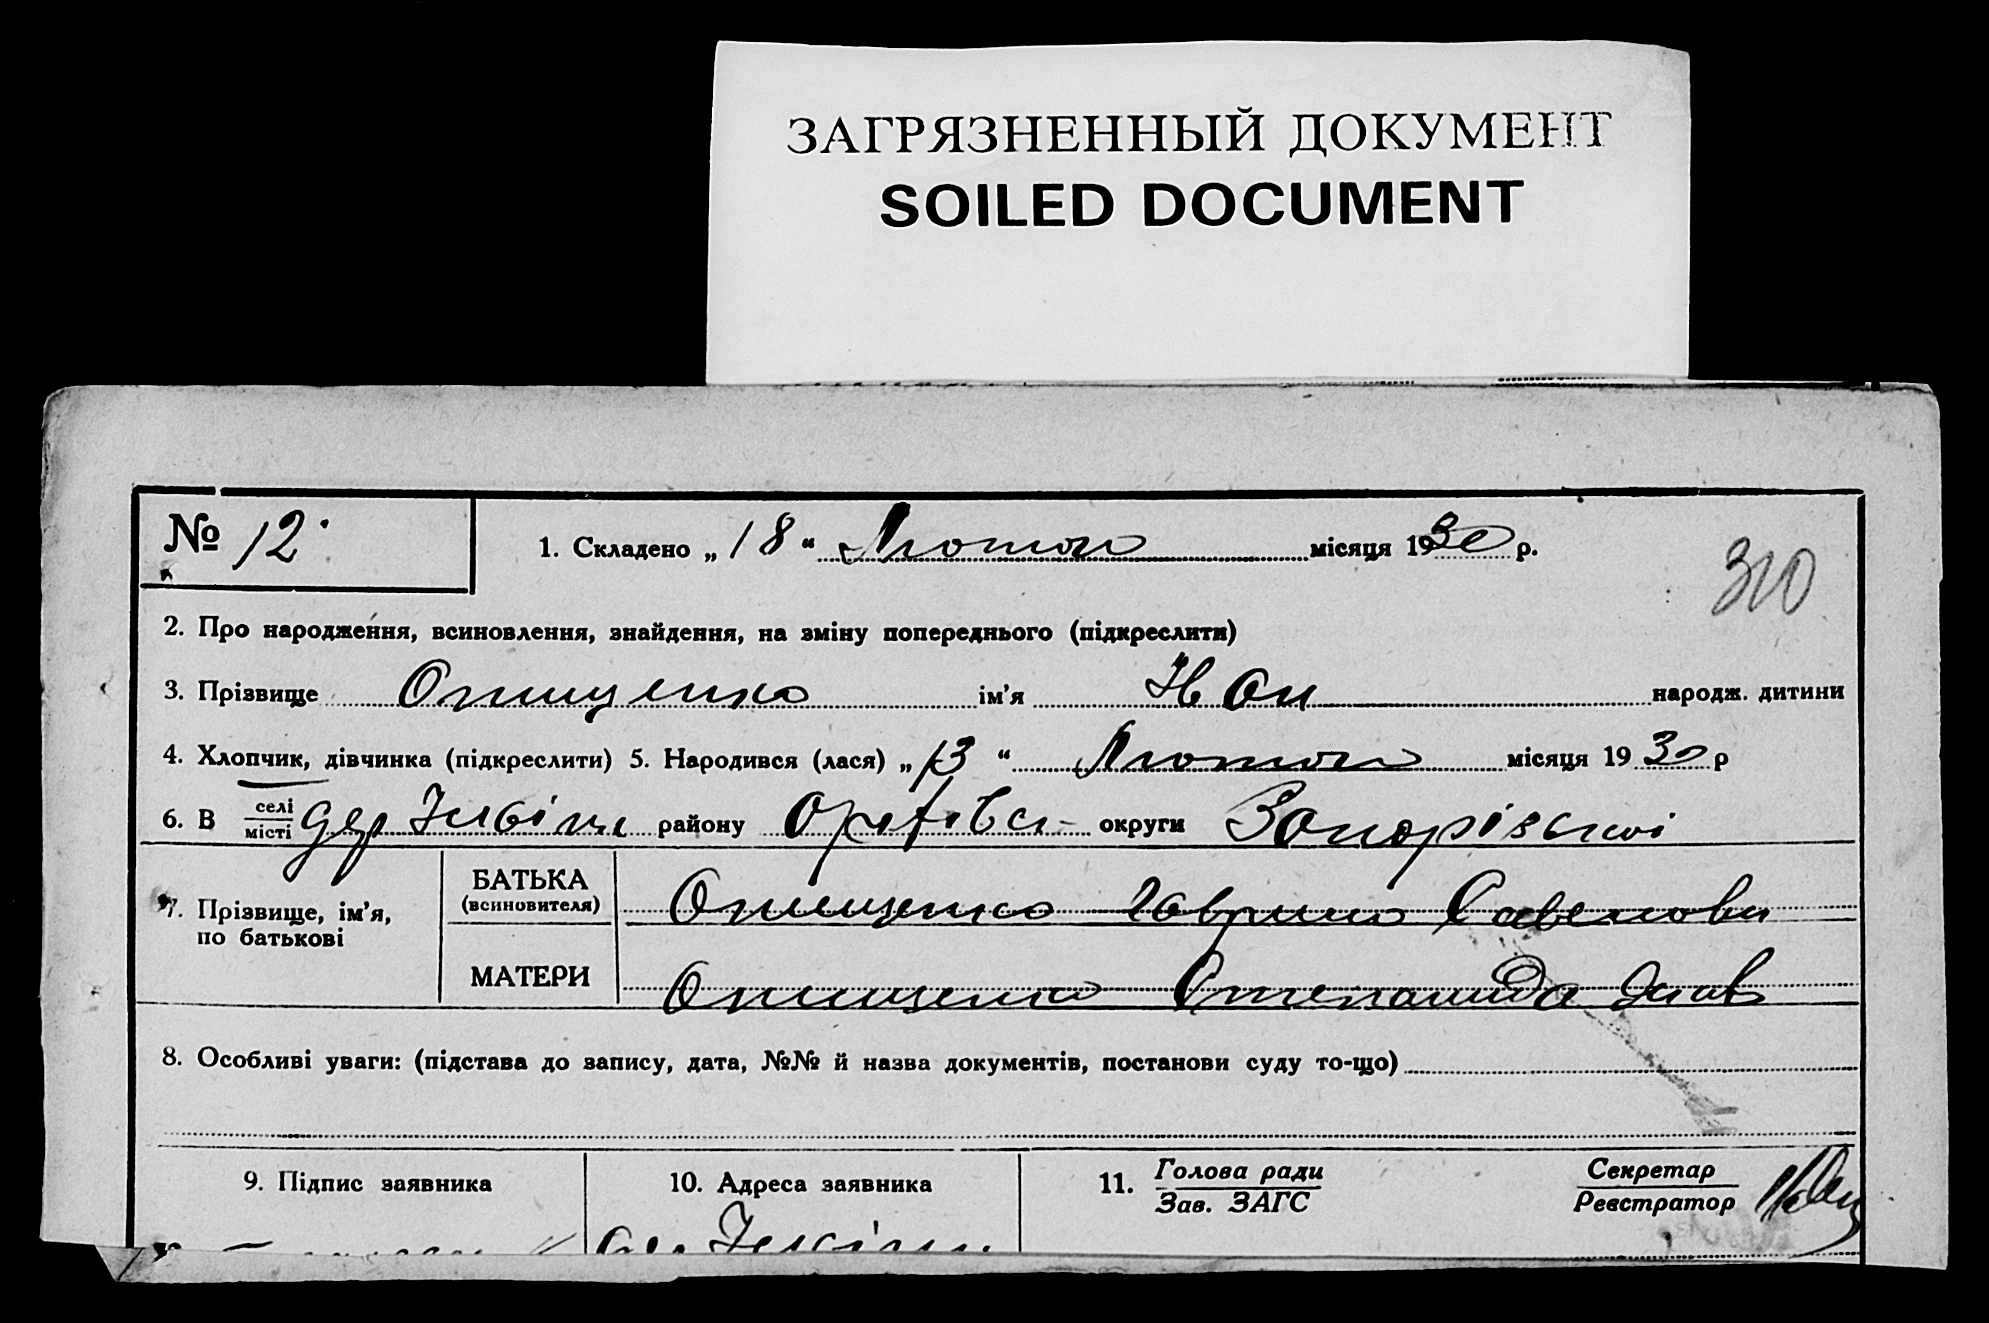 ЗАГРЯЗНЕННЫЙ ДОКУМЕНТ
SOILED DOCUMENT
№ 12
1. Складено „18“ Лютого місяця 1930 р.
310
2. Про народження, всиновлення, знайдення, на зміну попереднього (підкреслити)
3. Прізвище Онищенко ім’я Іван народж. дитини
4. Хлопчик, дівчинка (підкреслити) 5. Народився (лася) „13“ Лютого місяця 1930 р
6. В селі/місті району округи
7. Прізвище, ім’я, по батькові
БАТЬКА (всиновителя) Онищенко Савелович
МАТЕРИ Онищенко Степанида
8. Особливі уваги: (підстава до запису, дата, №№ й назва документів, постанови суду то-що)
9. Підпис заявника
10. Адреса заявника
11. Голова ради / Зав. ЗАГС
Секретар / Реєстратор